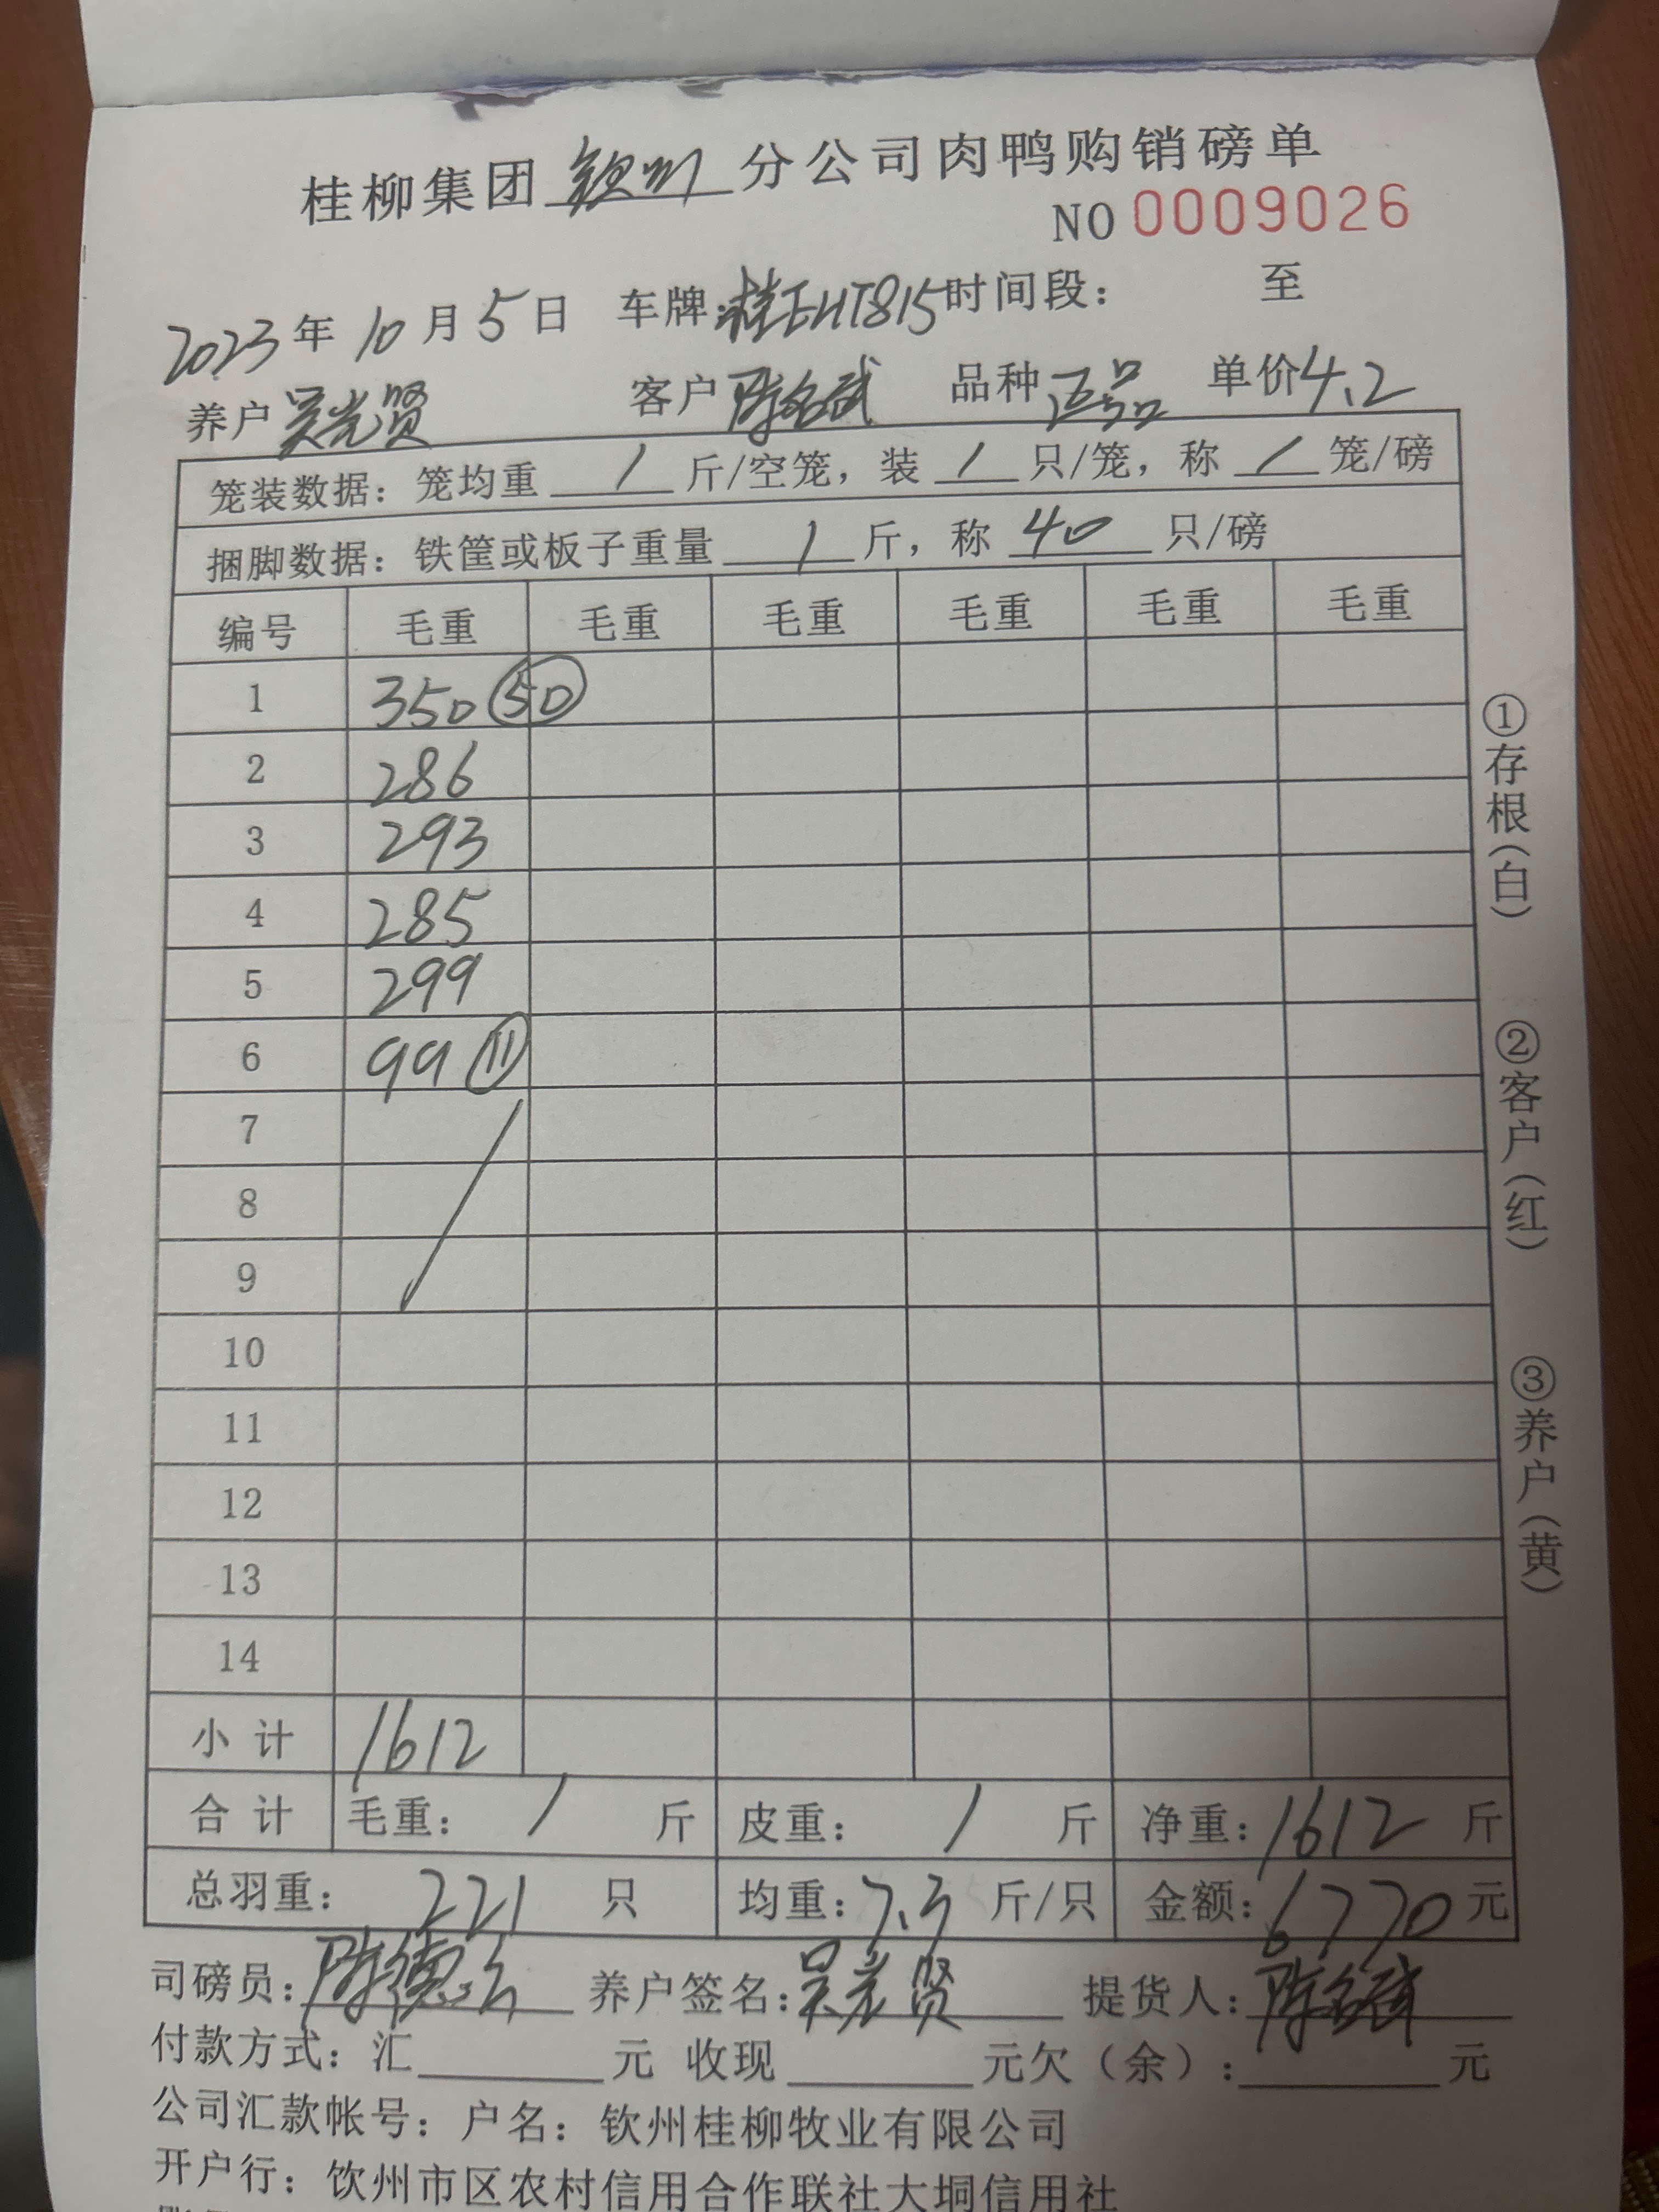 桂柳集团钦州分公司肉鸭购销磅单
NO 0009026
2023年10月5日 车牌:桂EHT815时间段: 至
养户吴光贤 客户陈名武 品种正品 单价4.2
笼装数据: 笼均重 / 斤/空笼, 装 / 只/笼, 称 / 笼/磅
捆脚数据: 铁筐或板子重量 / 斤, 称 40 只/磅
编号 毛重 毛重 毛重 毛重 毛重 毛重
1 350 50
2 286
3 293
4 285
5 299
6 99 11
7
8
9
10
11
12
13
14
小计 1612
合计 毛重: / 斤 皮重: / 斤 净重: 1612 斤
总羽重: 221 只 均重: 7.3 斤/只 金额: 6770 元
司磅员: 陈德 养户签名: 吴光贤 提货人: 陈名武
付款方式: 汇 元 收现 元欠(余): 元
公司汇款帐号: 户名: 钦州桂柳牧业有限公司
开户行: 钦州市区农村信用合作联社大垌信用社
①存根(白) ②客户(红) ③养户(黄)